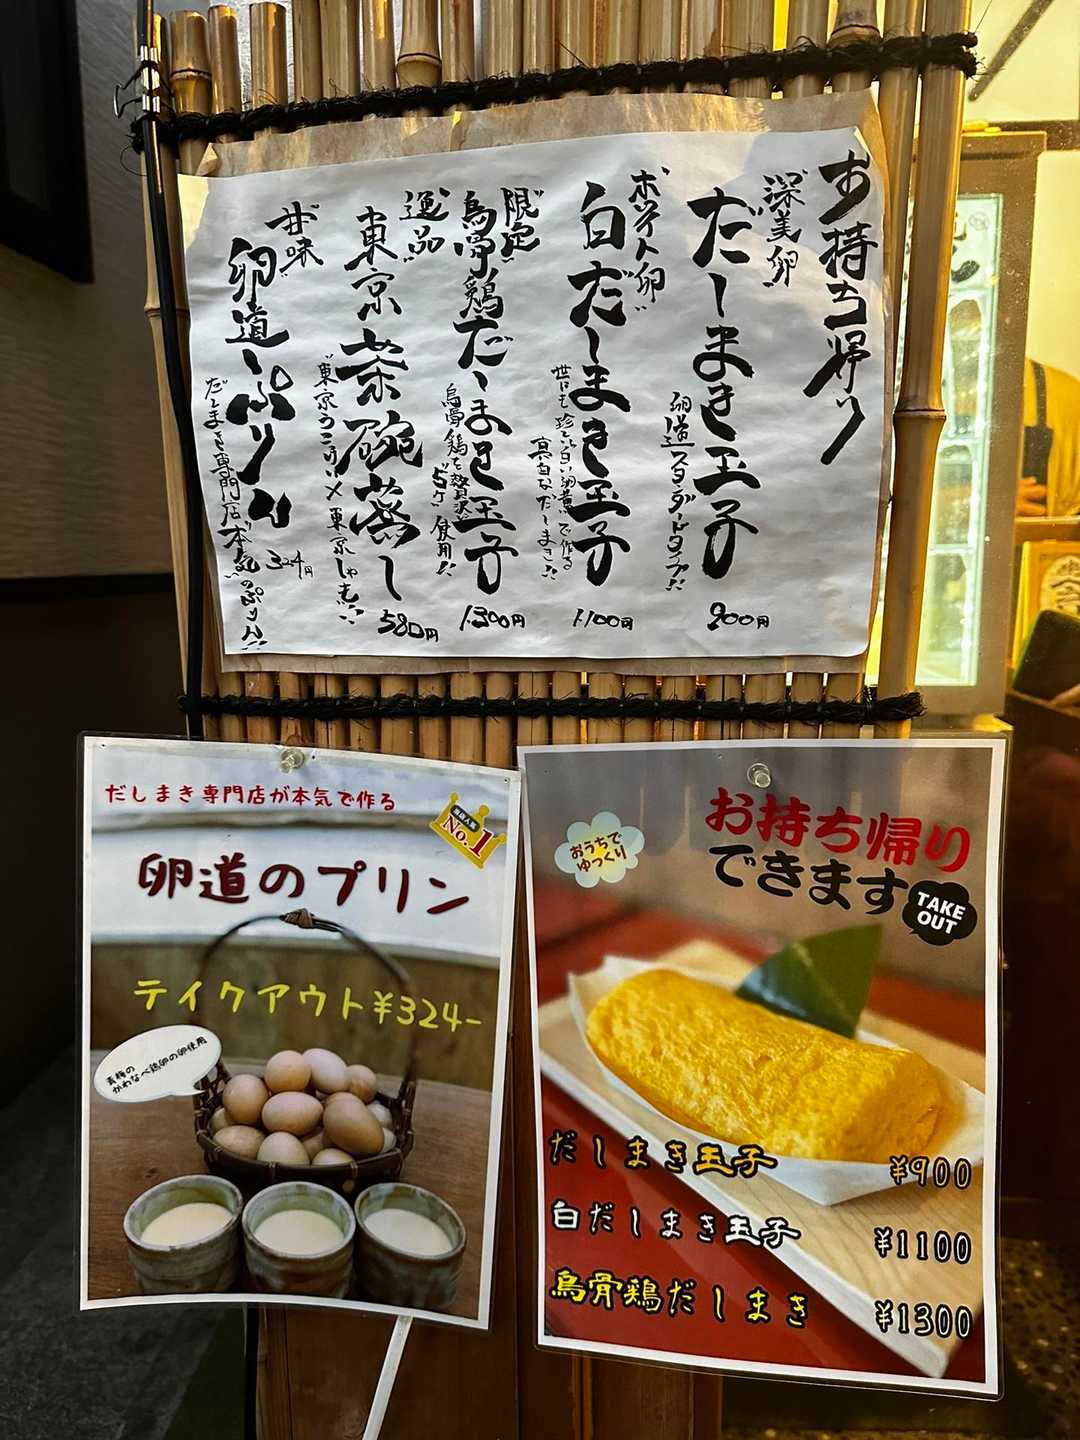 お持ち帰り
"深美卵"
だしまき玉子
卵道スタンダードタイプ!!
900円
ホワイト卵"
白だしまき玉子
世にも珍しい白い卵黄で作る
真白なだしまき!!
1100円
"限定"
烏骨鶏だしまき玉子
烏骨鶏を贅沢に"5ケ"使用!!
1300円
"逸品"
東京茶碗蒸し
"東京うこっけい×東京しゃも"
580円
"甘味"
卵道ぷりん
だしまき専門店"本気"のぷりん!!
324円
だしまき専門店が本気で作る
No.1
卵道のプリン
テイクアウト¥324-
青梅の
かわなべ鶏卵の卵使用
おうちで
ゆっくり
お持ち帰り
できます
TAKE
OUT
だしまき玉子 ¥900
白だしまき玉子 ¥1100
烏骨鶏だしまき ¥1300